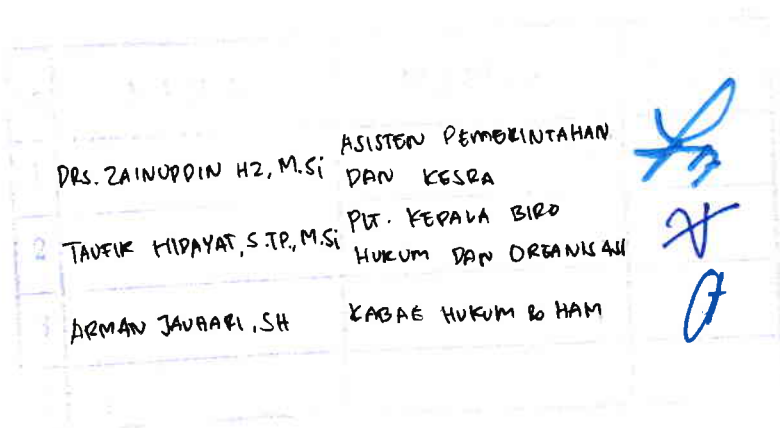 DRS. ZAINUDDIN HZ, M.Si
ASISTEN PEMERINTAHAN
DAN KESRA
2
TAUFIK HIDAYAT, S.TP., M.Si
PLT. KEPALA BIRO
HUKUM DAN ORGANISASI
ARMAN JAUHARI, SH
KABAG HUKUM & HAM